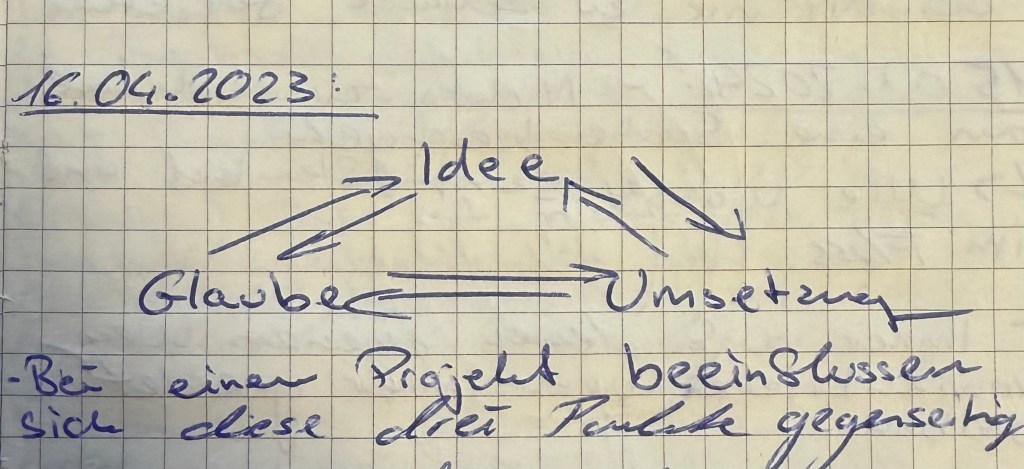 16.04.2023:
Idee
Glaube Umsetzung
- Bei einem Projekt beeinflussen
sich diese drei Punkte gegenseitig